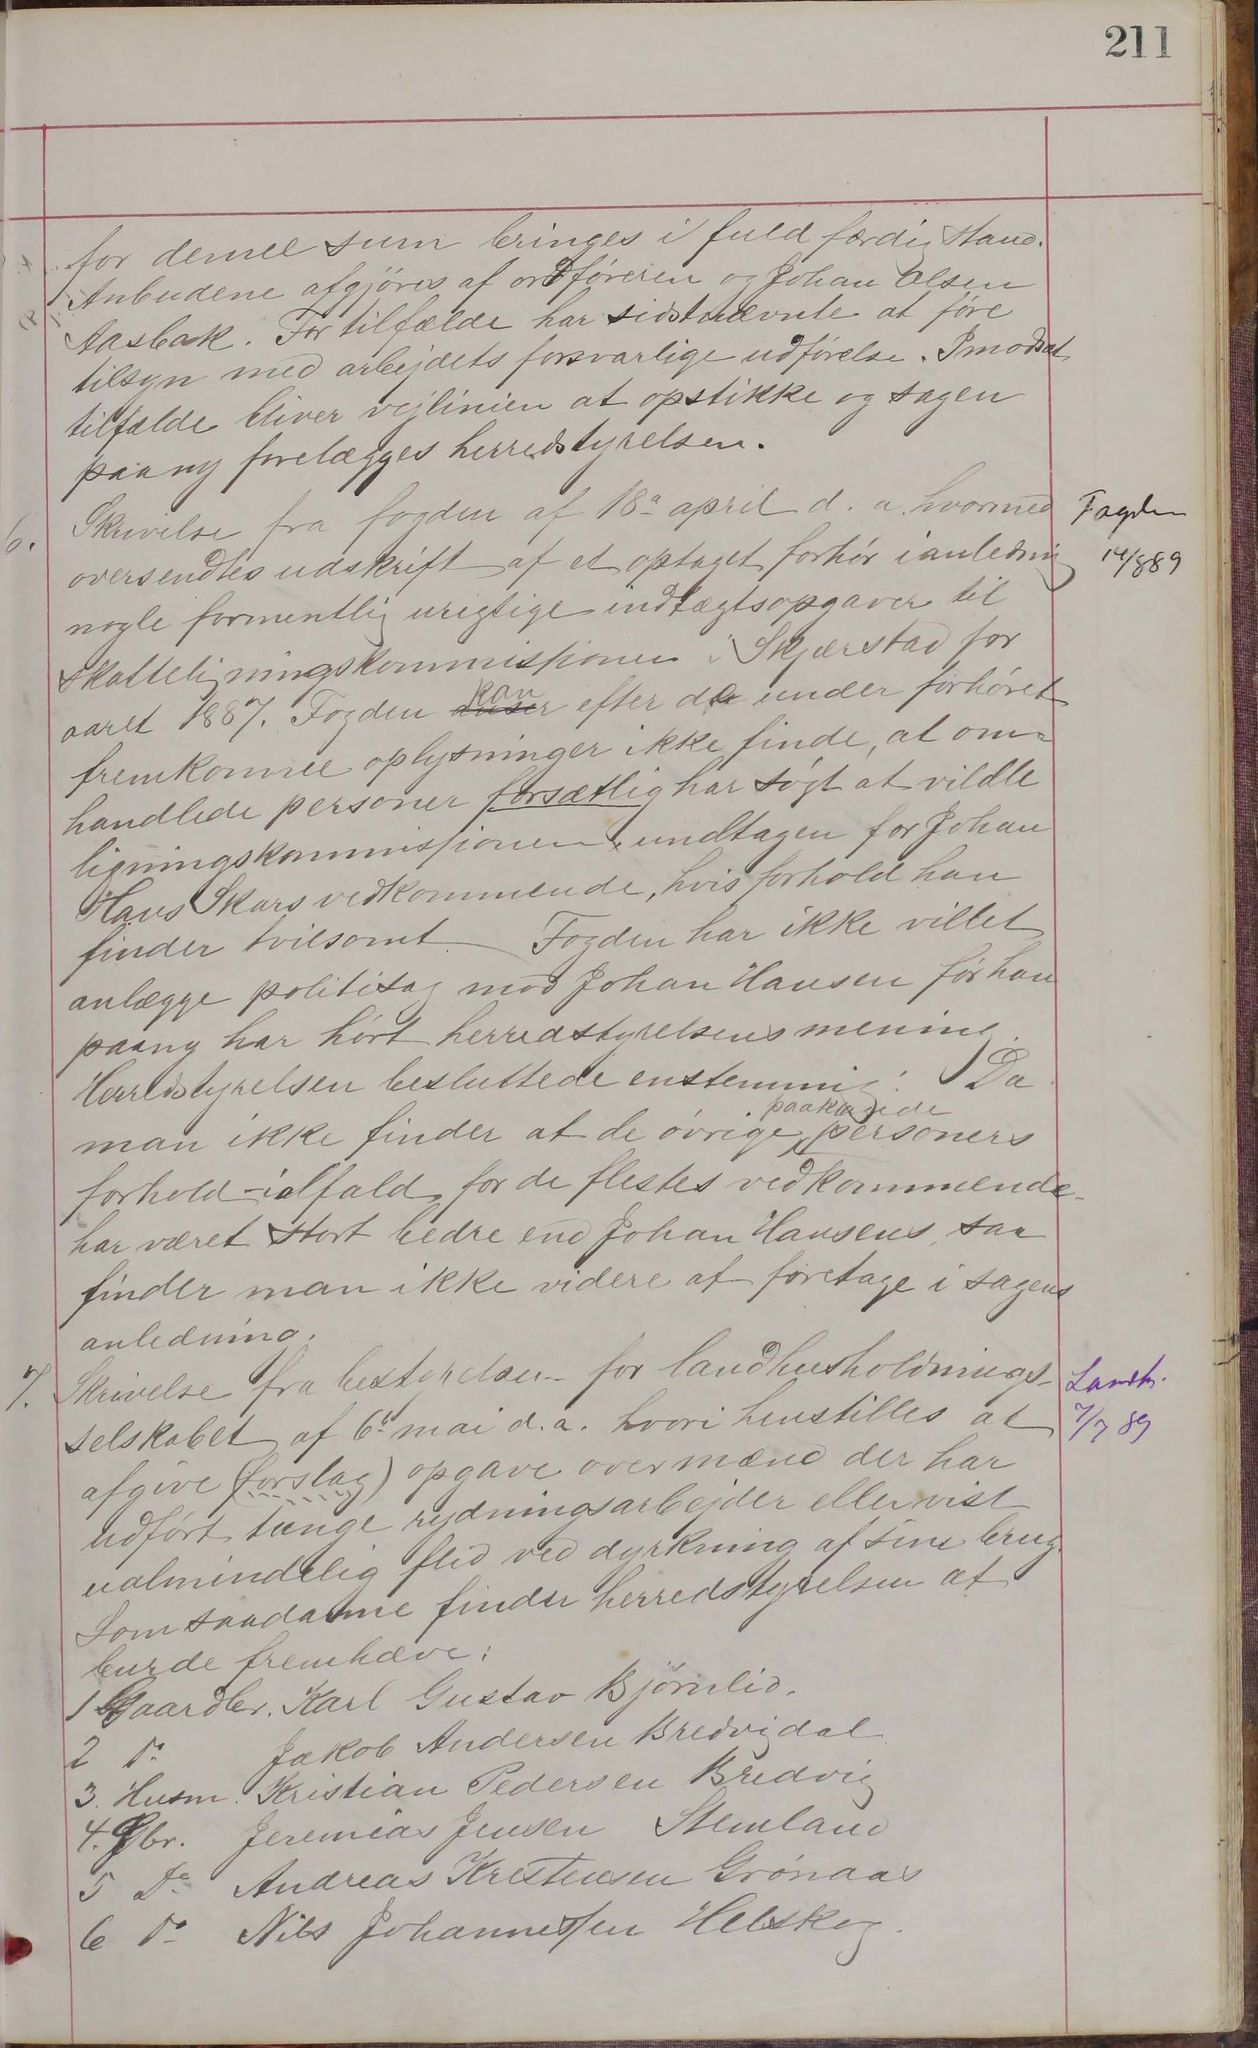 211
for denne sum bringes i fuld færdig stand.
Anbudene afgjöres af ordföreren og Johan Olsen
Aasbak. For tilfælde har sidstnævnte at före
tilsyn med arbejdets forsvarlige udförelse. I modsat
tilfælde bliver vejlinien at opstikke og sagen
paany forelægges herredstyrelsen.
6. Skrivelse fra fogden af 18de april d. a. hvormed
Fogden
oversendtes udskrift af et optaget forhör i anledning
14/889
nogle formentlig urigtige indtægtsopgaver til
skatteligningskommissionen i Skjerstad for
aaret 1887. Fogden kan efter de under forhöret
fremkomne oplysninger ikke finde, at om=
handlede personer forsætlig har sögt at vildle
ligningskommissionen, undtagen for Johan
Hans Skars vedkommende, hvis forhold han
finder tvilsomt. Fogden har ikke villet
anlægge politisag mod Johan Hansen för han
paany har hört herredstyrelsens mening.
Herredstyrelsen besluttede enstemmig: Da
man ikke finder at de övrige paakjærede personers
forhold - ialfald for de flestes vedkommende -
har været stort bedre end Johan Hansens, saa
finder man ikke videre at foretage i sagens
anledning.
7. Skrivelse fra bestyrelsen for landhusholdnings-
Landh.
selskabet af 6te mai d. a. hvori henstilles at
7/7 89
afgive (forslag) opgave over mænd der har
udfört tunge rydningsarbejder eller vist
ualmindelig flid ved dyrkning af sine brug.
Som saadanne finder herredstyrelsen at
burde fremhæve:
1 Gaardbr. Karl Gustav Björnlid.
2 Do Jakob Andersen Bredvigdal
3. Husm. Kristian Pedersen Bredvig
4. Gbr. Jeremias Jensen Stemland
5 Do Andreas Kristensen Grönaas
6 Do Nils Johannessen Helskog.